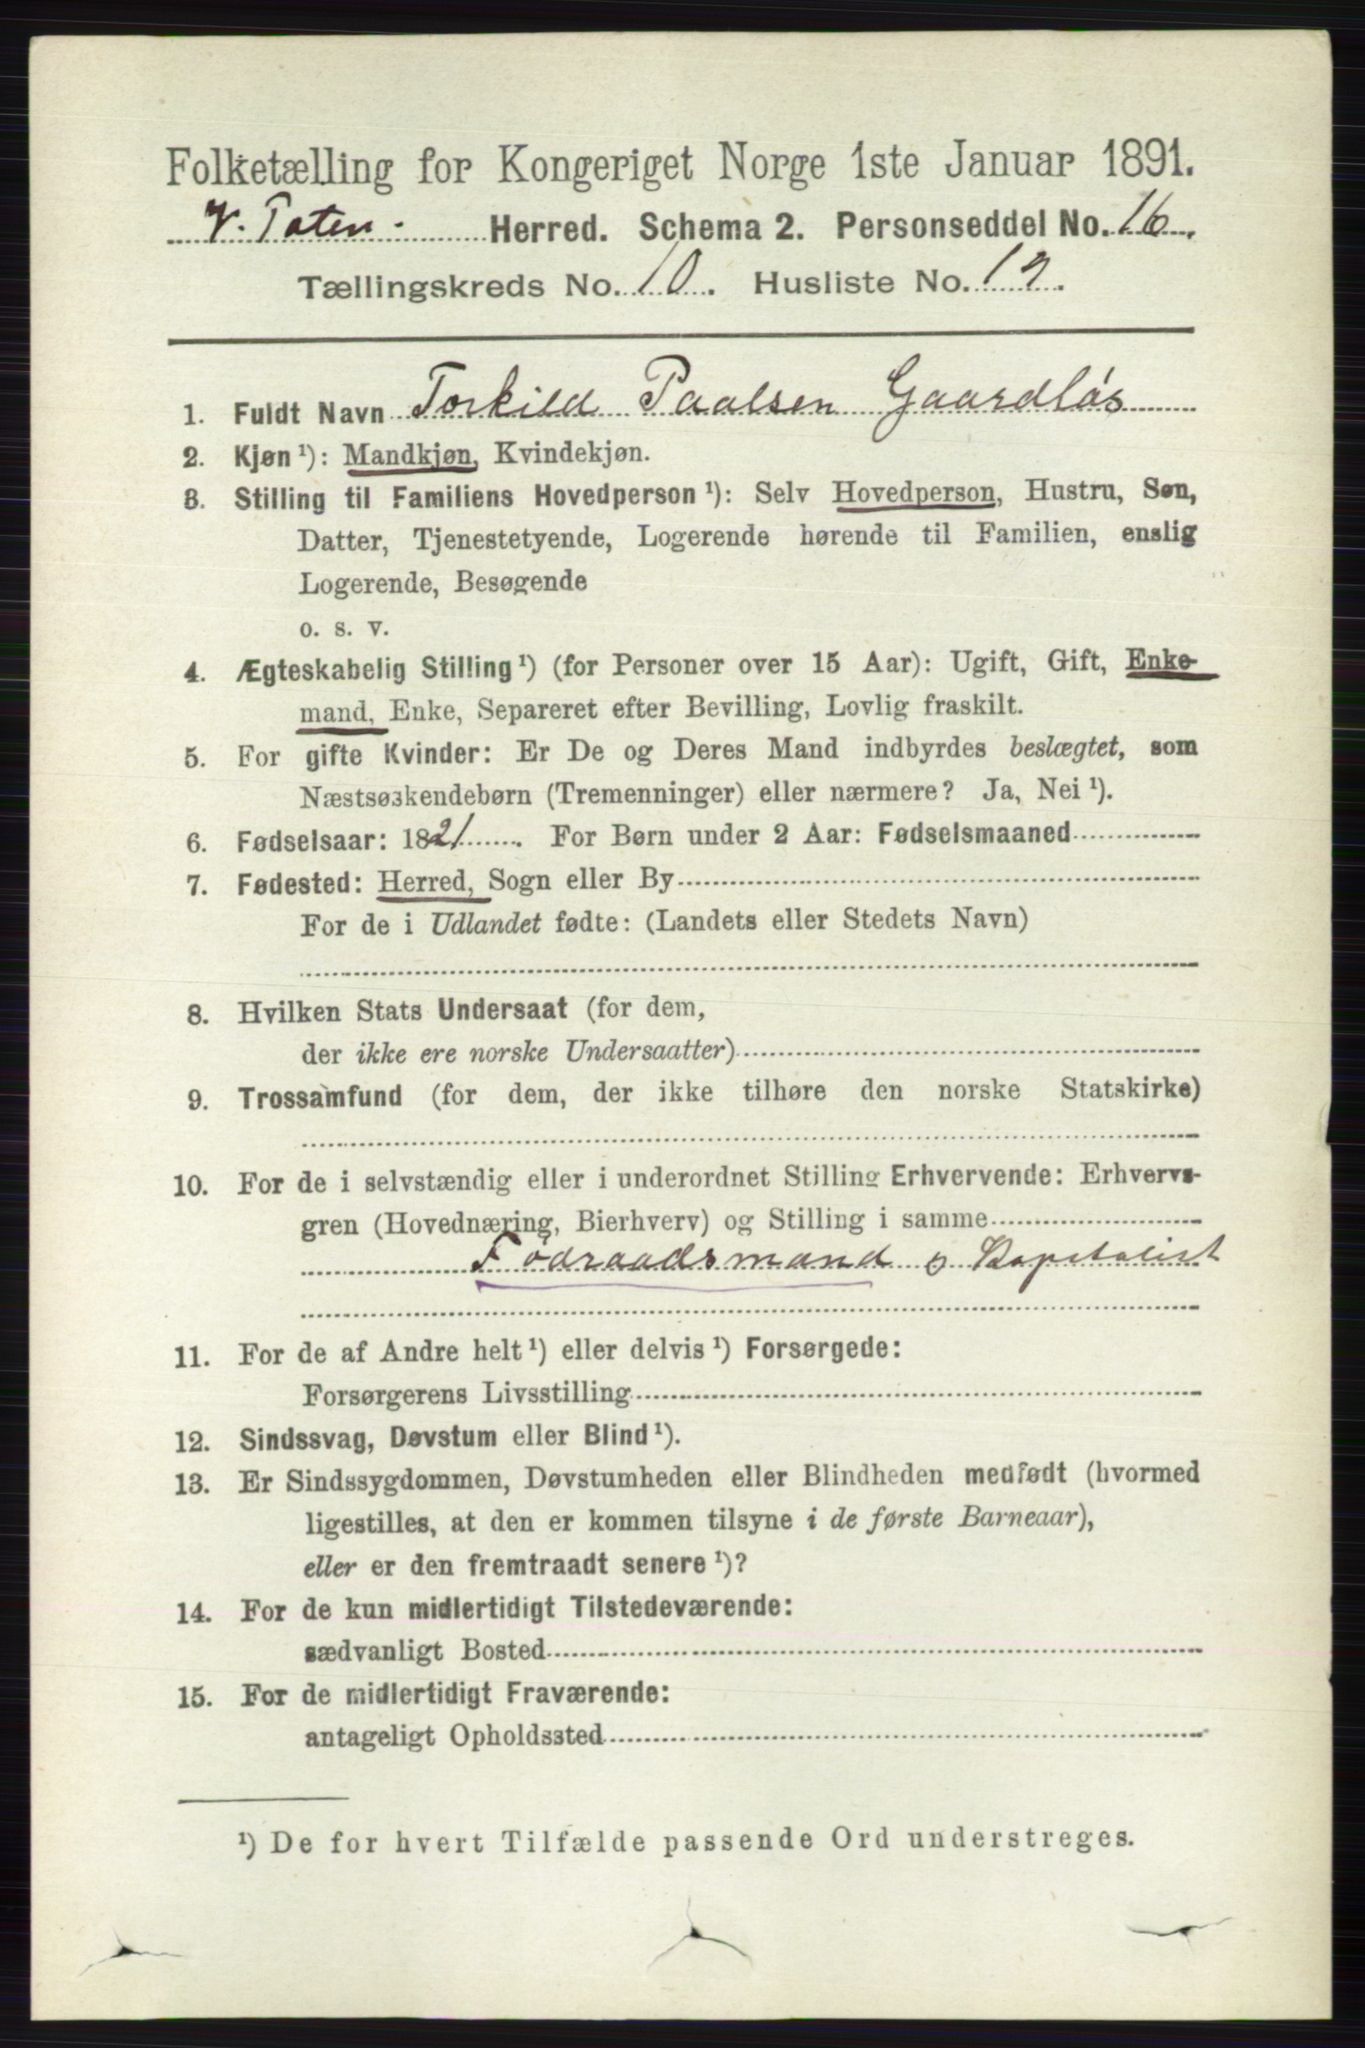 Folketælling for Kongeriget Norge 1ste Januar 1891.
V. Toten. Herred. Schema 2. Personseddel No. 16.
Tællingskreds No. 10. Husliste No.
1. Fuldt Navn Torkild Paalsen Gaardløs
2. Kjøn ¹): Mandkjøn, Kvindekjøn.
3. Stilling til Familiens Hovedperson ¹): Selv Hovedperson, Hustru, Søn,
Datter, Tjenestetyende, Logerende hørende til Familien, enslig
Logerende, Besøgende
o. s. v.
4. Ægteskabelig Stilling ¹) (for Personer over 15 Aar): Ugift, Gift, Enke-
mand, Enke, Separeret efter Bevilling, Lovlig fraskilt.
5. For gifte Kvinder: Er De og Deres Mand indbyrdes beslægtet, som
Næstsøskendebørn (Tremenninger) eller nærmere? Ja, Nei ¹).
6. Fødselsaar: 1821. For Børn under 2 Aar: Fødselsmaaned
7. Fødested: Herred, Sogn eller By
For de i Udlandet fødte: (Landets eller Stedets Navn)
8. Hvilken Stats Undersaat (for dem,
der ikke ere norske Undersaatter)
9. Trossamfund (for dem, der ikke tilhøre den norske Statskirke)
10. For de i selvstændig eller i underordnet Stilling Erhvervende: Erhvervs-
gren (Hovednæring, Bierhverv) og Stilling i samme
Födraadsmand o Kapitalist
11. For de af Andre helt ¹) eller delvis ¹) Forsørgede:
Forsørgerens Livsstilling
12. Sindssvag, Døvstum eller Blind ¹).
13. Er Sindssygdommen, Døvstumheden eller Blindheden medfødt (hvormed
ligestilles, at den er kommen tilsyne i de første Barneaar),
eller er den fremtraadt senere ¹)?
14. For de kun midlertidigt Tilstedeværende:
sædvanligt Bosted
15. For de midlertidigt Fraværende:
antageligt Opholdssted
¹) De for hvert Tilfælde passende Ord understreges.